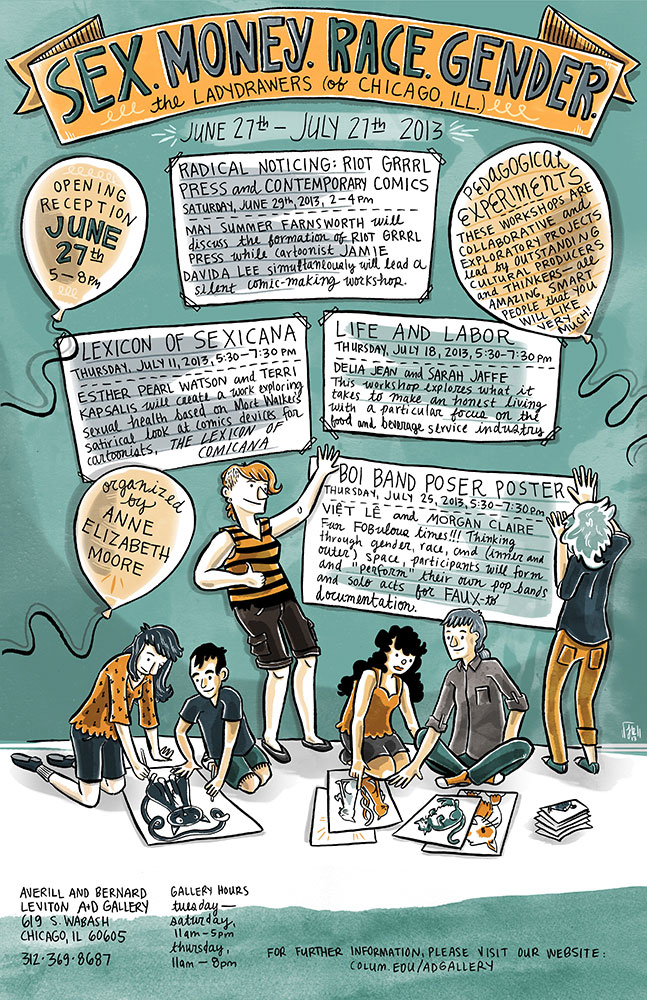 SEX. MONEY. RACE. GENDER.
the LADYDRAWERS (of CHICAGO, ILL.)
JUNE 27th – JULY 27th 2013
OPENING
RECEPTION
JUNE
27th
5 – 8pm
RADICAL NOTICING: RIOT GRRRL
PRESS and CONTEMPORARY COMICS
SATURDAY, JUNE 29th, 2013, 2 – 4pm
MAY SUMMER FARNSWORTH will
discuss the formation of RIOT GRRRL
PRESS while cartoonist JAMIE
DAVIDA LEE simultaneously will lead a
silent comic-making workshop.
PEDAGOGICAL
EXPERIMENTS
THESE WORKSHOPS ARE
COLLABORATIVE and
EXPLORATORY PROJECTS
lead by OUTSTANDING
CULTURAL PRODUCERS
and THINKERS — all
AMAZING, SMART
PEOPLE that YOU
WILL LIKE
VERY MUCH!
LEXICON OF SEXICANA
THURSDAY, JULY 11, 2013, 5:30 – 7:30 pm
ESTHER PEARL WATSON and TERRI
KAPSALIS will create a work exploring
sexual health based on Mort Walker's
satirical look at comics devices for
cartoonists, THE LEXICON OF
COMICANA
LIFE AND LABOR
THURSDAY, JULY 18, 2013, 5:30 – 7:30 pm
DELIA JEAN and SARAH JAFFE
This workshop explores what it
takes to make an honest living
with a particular focus on the
food and beverage service industry
organized
by
ANNE
ELIZABETH
MOORE
BOI BAND POSER POSTER
THURSDAY, JULY 25, 2013, 5:30 – 7:30pm
VIỆT LÊ and MORGAN CLAIRE
Fun FOBulous times!!! Thinking
through gender, race, and (inner and
outer) space, participants will form
and "perform" their own pop bands
and solo acts for FAUX-to
documentation.
AVERILL AND BERNARD
LEVITON A+D GALLERY
619 S. WABASH
CHICAGO, IL 60605
312·369·8687
GALLERY HOURS
tuesday —
saturday,
11am – 5pm
thursday,
11am – 8pm
FOR FURTHER INFORMATION, PLEASE VISIT OUR WEBSITE:
COLUM.EDU/ADGALLERY